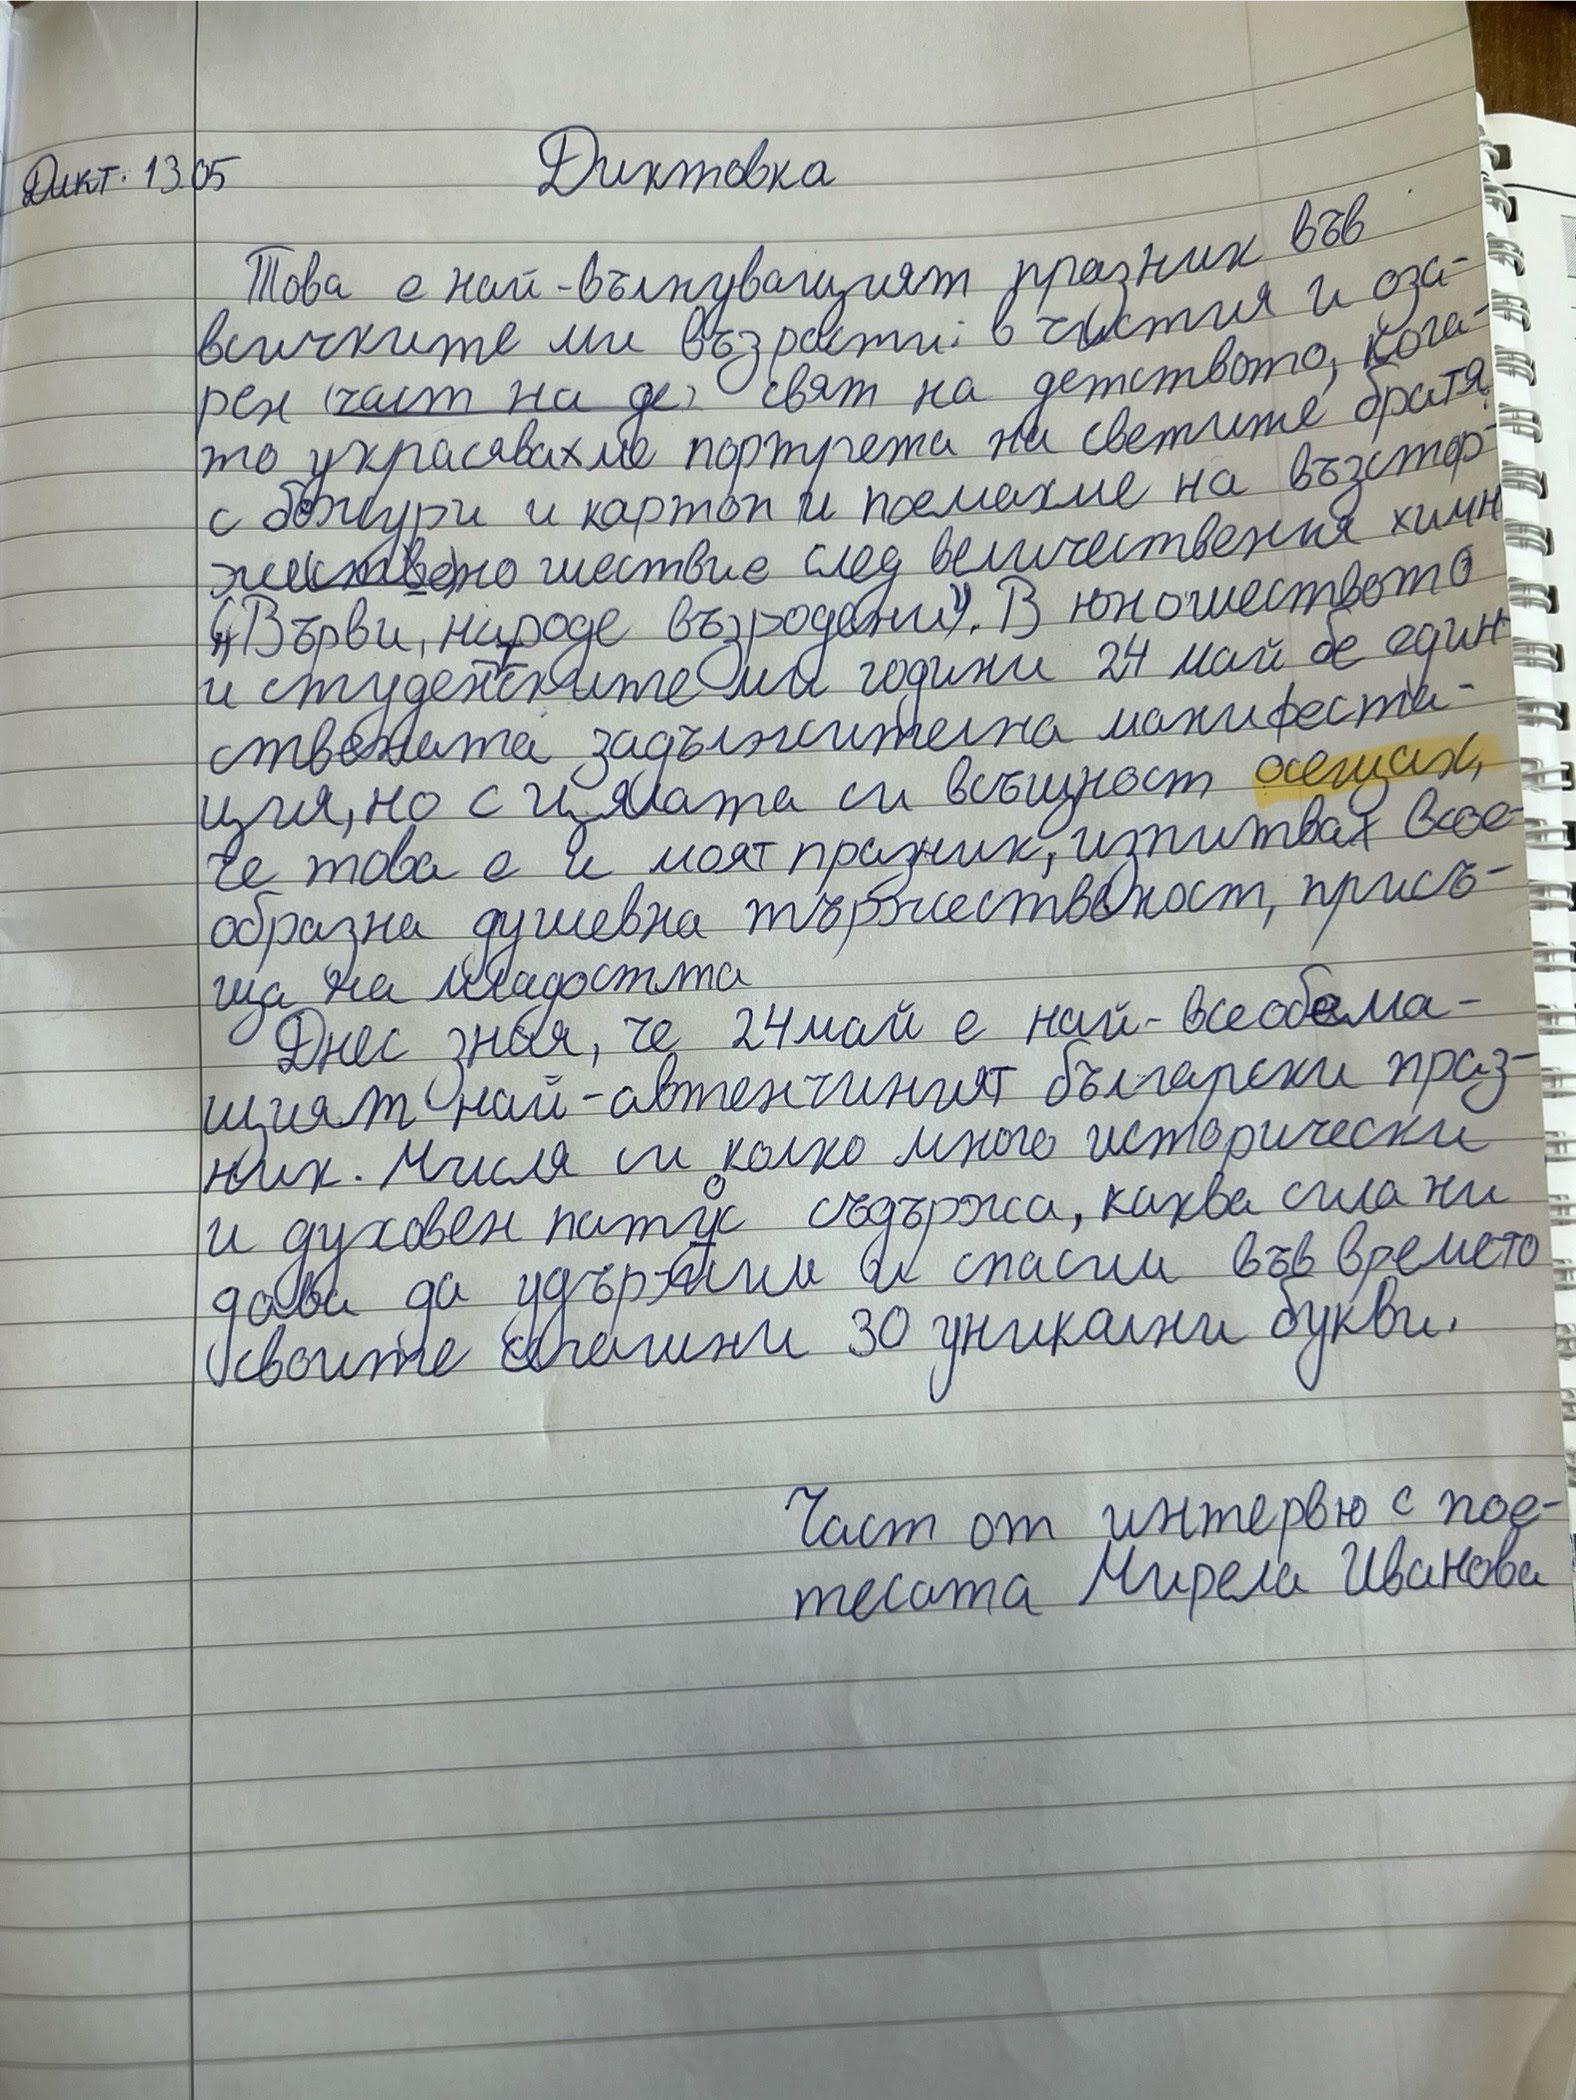 Дикт. 13.05
Диктовка
Това е най-вълнуващият празник във
всичките ми възрасти: в чистия и оза-
рен (част на де) свят на детството, кога-
то украсявахме портрета на светите братя
с божури и картон и поемахме на възстор-
жествено шествие след величествения химн
("Върви, народе възродени"). В юношеството
и студентските ми години 24 май бе един
ствената задължителна манифеста-
ция, но с цялата си всъщност осещах,
че това е и моят празник, изпитвах всое-
образна душевна тържественост, присъ-
ща на младостта
Днес зная, че 24 май е най-всеобема-
щият най-автенчиният български праз-
ник. Мисля си колко много исторически
и духовен патос съдържа, каква сила ни
дава да удържим и спасим във времето
своите 30 уникални букви.
Част от интервю с пое-
тесата Мирела Иванова